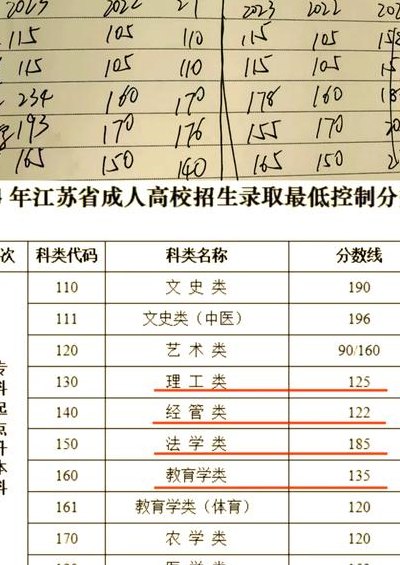 2023 2022 21 2023 2022
115 105 110 115 105
115 105 110 115 105
234 160 170 178 160
193 170 176 155 170
165 150 140 165 150
年江苏省成人高校招生录取最低控制分
次 科类代码 科类名称 分数线
110 文史类 190
111 文史类（中医） 196
120 艺术类 90/160
130 理工类 125
140 经管类 122
150 法学类 185
160 教育学类 135
161 教育学类（体育） 120
170 农学类 120
专科起点升本科